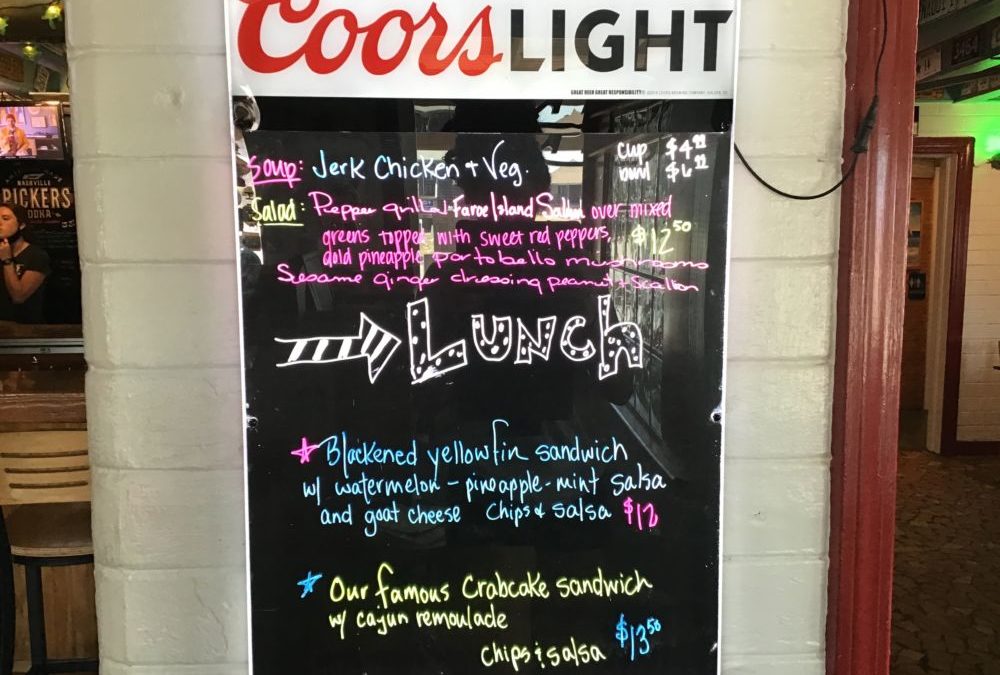 Coors LIGHT
GREAT BEER GREAT RESPONSIBILITY
Soup: Jerk Chicken + Veg. cup $4
bowl $6
Salad: Pepper grilled Faroe Island Salmon over mixed
greens topped with sweet red peppers, $12 50
gold pineapple portobello mushrooms
Sesame ginger dressing peanut + Scallion
Lunch
Blackened yellowfin sandwich
w/ watermelon - pineapple - mint salsa
and goat cheese chips & salsa $12
Our famous Crabcake sandwich
w/ cajun remoulade
chips & salsa $13 50
NASHVILLE
PICKERS